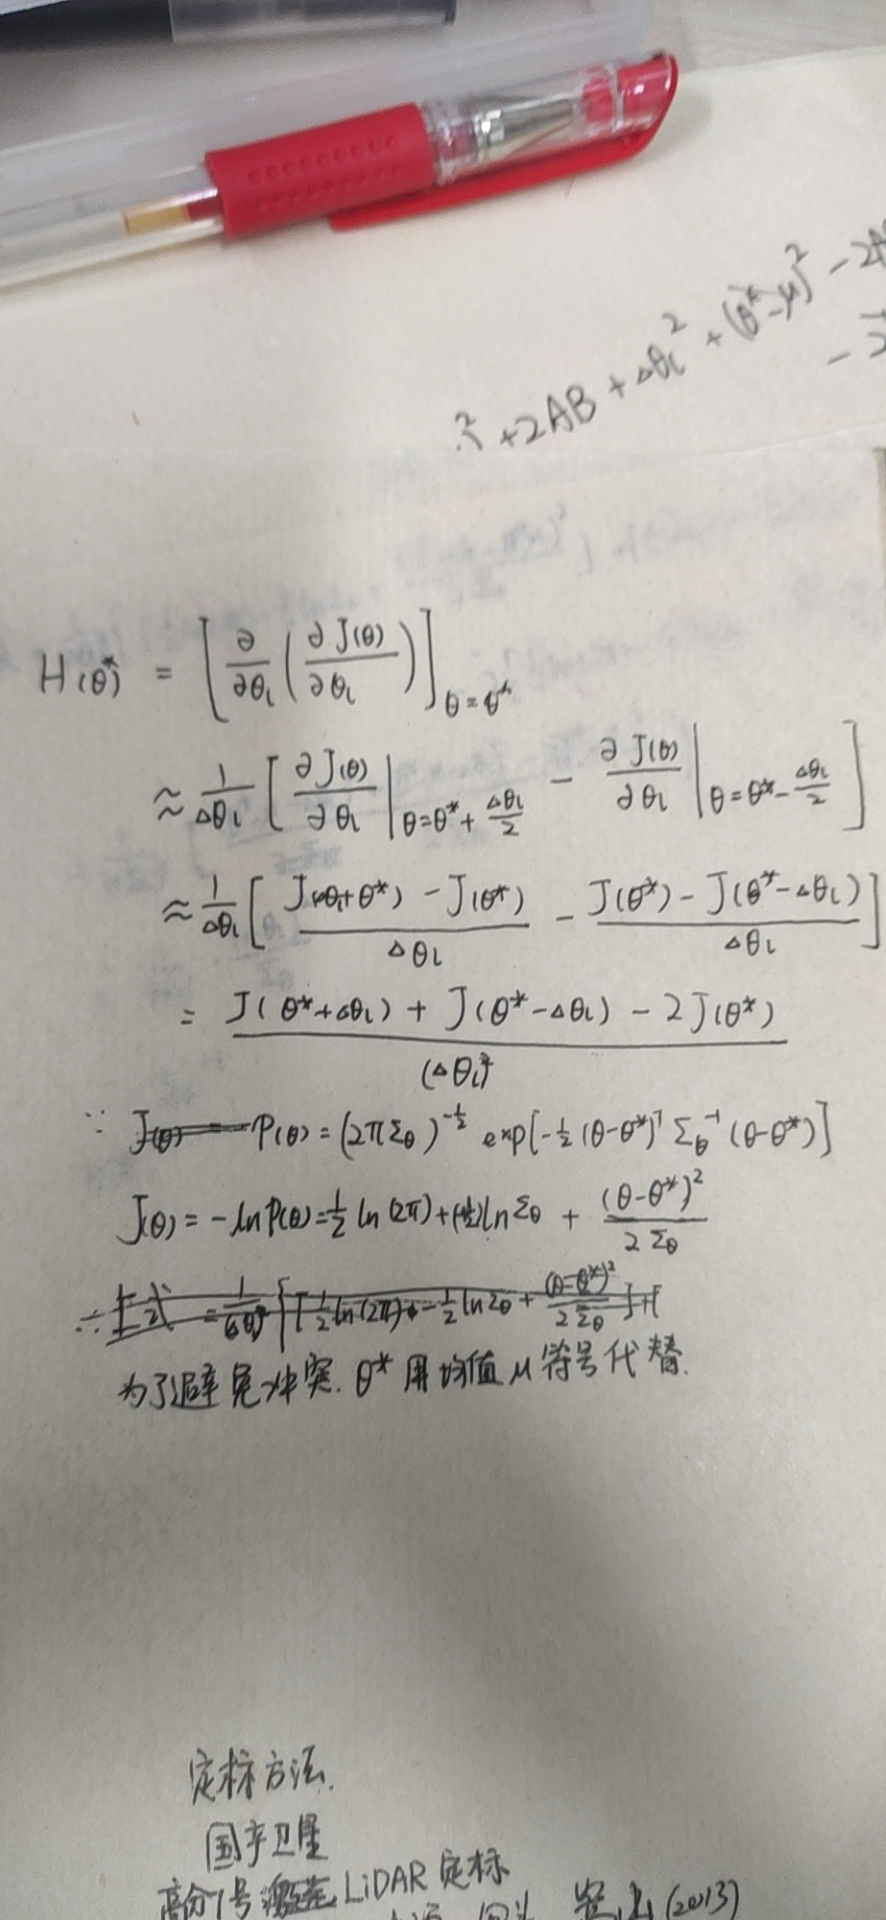 ² + 2AB + Δθi² + (θ* - μ)² - 2A
-
H(θ*) = [∂/∂θi (∂J(θ)/∂θi)]θ=θ*
≈ 1/Δθi [∂J(θ)/∂θi |θ=θ*+Δθi/2 - ∂J(θ)/∂θi |θ=θ*-Δθi/2]
≈ 1/Δθi [J(Δθi+θ*) - J(θ*)/Δθi - J(θ*) - J(θ*-Δθi)/Δθi]
= J(θ*+Δθi) + J(θ*-Δθi) - 2J(θ*)/(Δθi)²
∵ J(θ) = P(θ) = (2πΣθ)^-½ exp[-½(θ-θ*)ᵀ Σθ⁻¹ (θ-θ*)]
J(θ) = -ln P(θ) = ½ ln(2π) + (½) ln Σθ + (θ-θ*)²/2Σθ
∴ 上式 = 1/(Δθi)² {[½ ln(2π) + -½ ln Σθ + (θ-θ*)²/2Σθ] + [
为了避免冲突. θ* 用均值 μ 符号代替.
定标方法.
国产卫星
高分7号 LiDAR 定标
(2013)